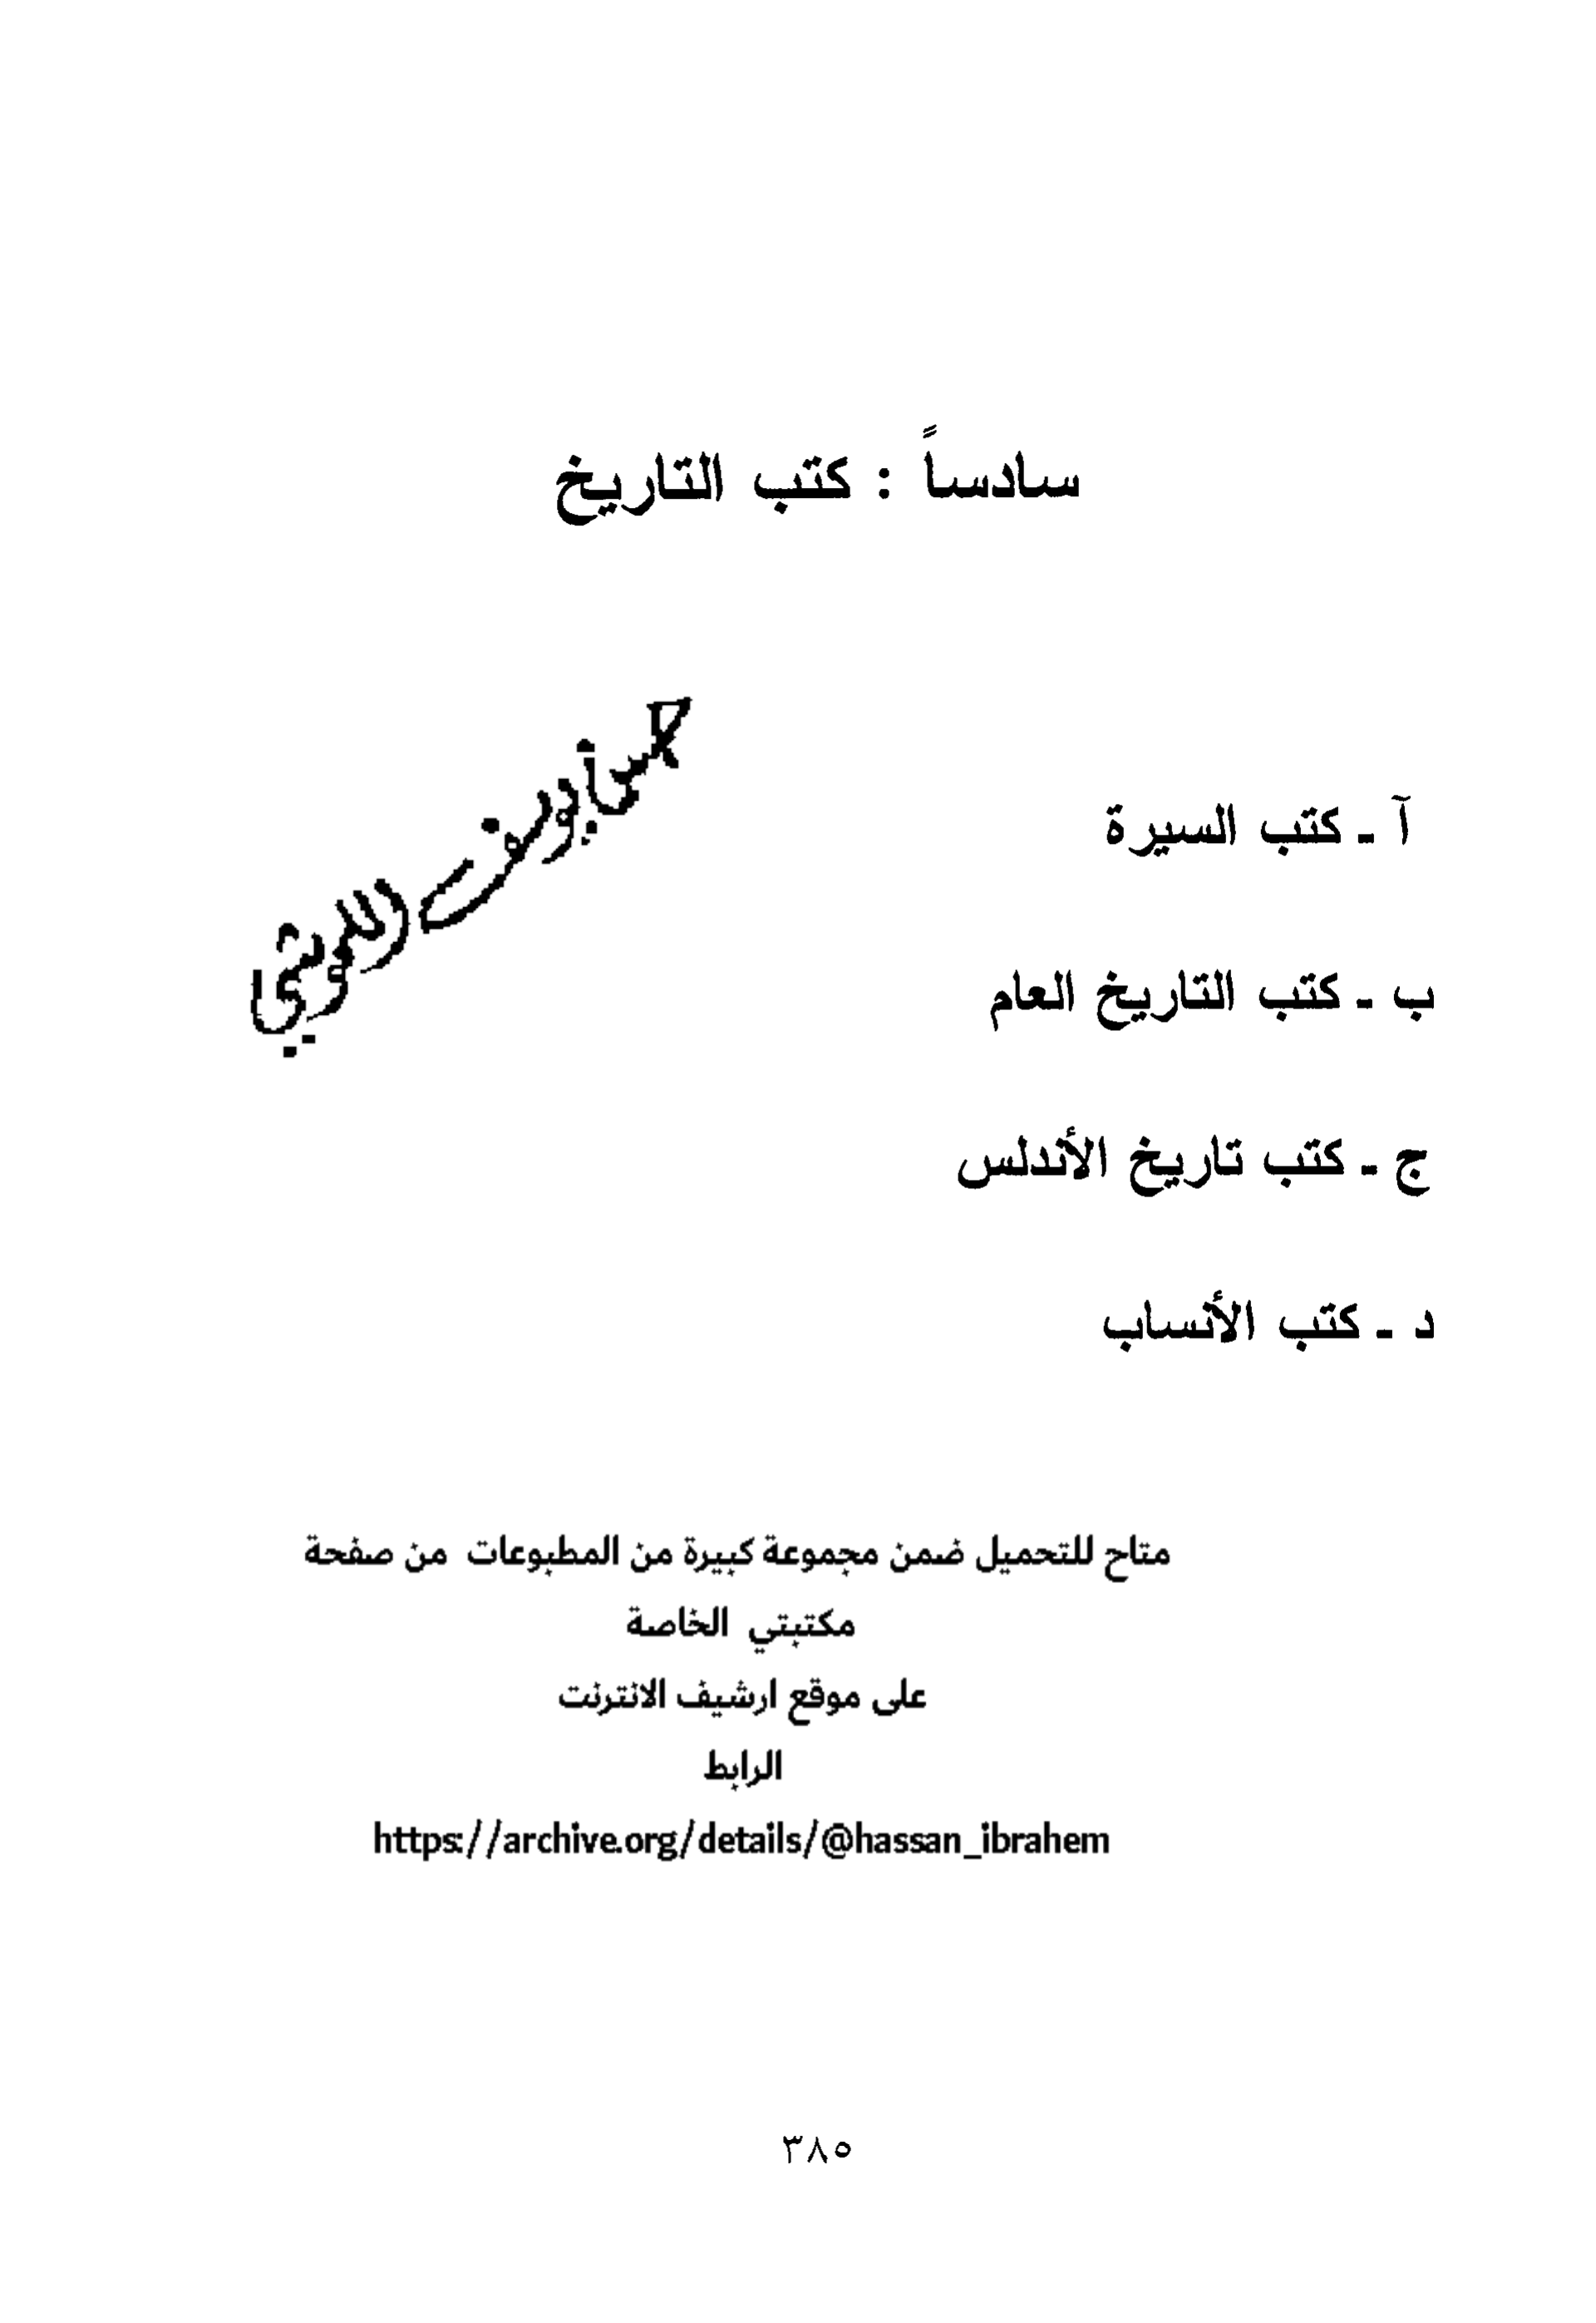 سادساً : كتب التاريخ
آ ـ كتب السيرة
ب ـ كتب التاريخ العام
ج ـ كتب تاريخ الأندلس
د ـ كتب الأنساب
متاح للتحميل ضمن مجموعة كبيرة من المطبوعات من صفحة
مكتبتي الخاصة
على موقع ارشيف الانترنت
الرابط
https://archive.org/details/@hassan_ibrahem
٣٨٥